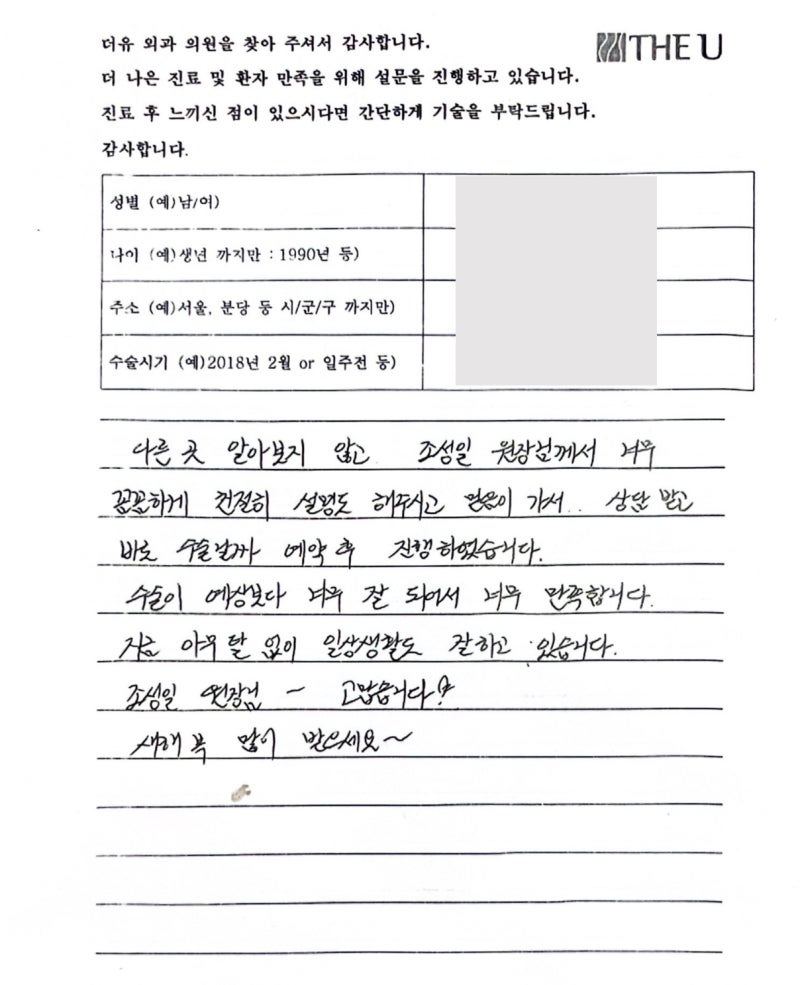 더유 외과 의원을 찾아 주셔서 감사합니다.
THE U
더 나은 진료 및 환자 만족을 위해 설문을 진행하고 있습니다.
진료 후 느끼신 점이 있으시다면 간단하게 기술을 부탁드립니다.
감사합니다.
성별 (예)남/여)
나이 (예)생년 까지만 : 1990년 등)
주소 (예)서울, 분당 등 시/군/구 까지만)
수술시기 (예)2018년 2월 or 일주전 등)
다른 곳 알아보지 않고 조성일 원장님께서 너무
꼼꼼하게 친절히 설명도 해주시고 믿음이 가서.. 상담 받고
바로 수술날짜 예약 후 진행하였습니다.
수술이 예상보다 너무 잘 되어서 너무 만족합니다.
지금 아무 탈 없이 일상생활도 잘하고 있습니다.
조성일 원장님 ~ 고맙습니다!
새해 복 많이 받으세요~